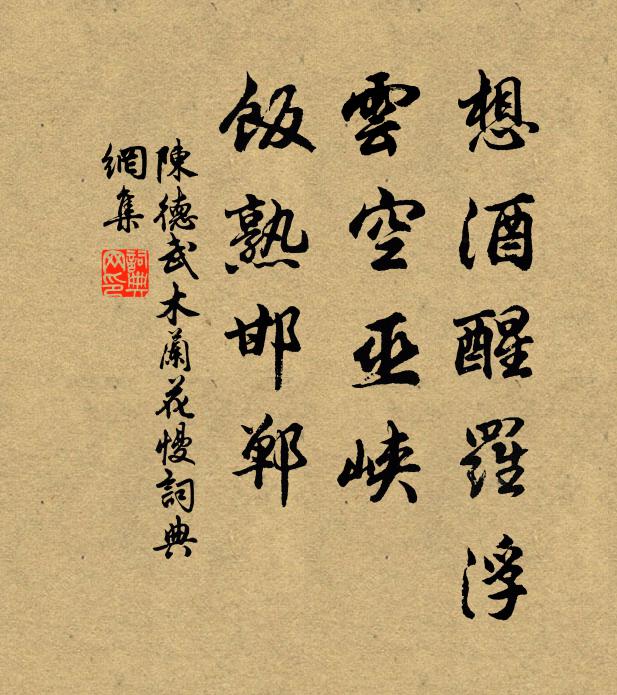 想酒醒羅浮
雲空巫峽
飯熟邯鄲
陳德武木蘭花慢詞典
網集
詞典網印